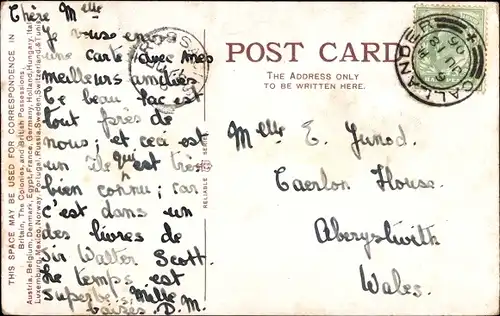 Chère Melle
Je vous envois
une carte avec mes
meilleurs amitiés
Ce beau lac est
tout près de
nous; et ceci est
un île qui est très
bien connu; car
c'est dans un
des livres de
Sir Walter Scott.
Le temps est
superbe. Mille
baises. D. M.
THIS SPACE MAY BE USED FOR CORRESPONDENCE IN
Britain, The Colonies, and British Possessions,
Austria, Belgium, Denmark, Egypt, France, Germany, Holland, Hungary, Italy,
Luxemburg, Mexico, Norway, Portugal, Russia, Sweden, Switzerland, & Tunis.
RELIABLE SERIES
POST CARD
THE ADDRESS ONLY
TO BE WRITTEN HERE.
CALLANDER
Melle E. Junod.
Caerlon House.
Aberystwith
Wales.